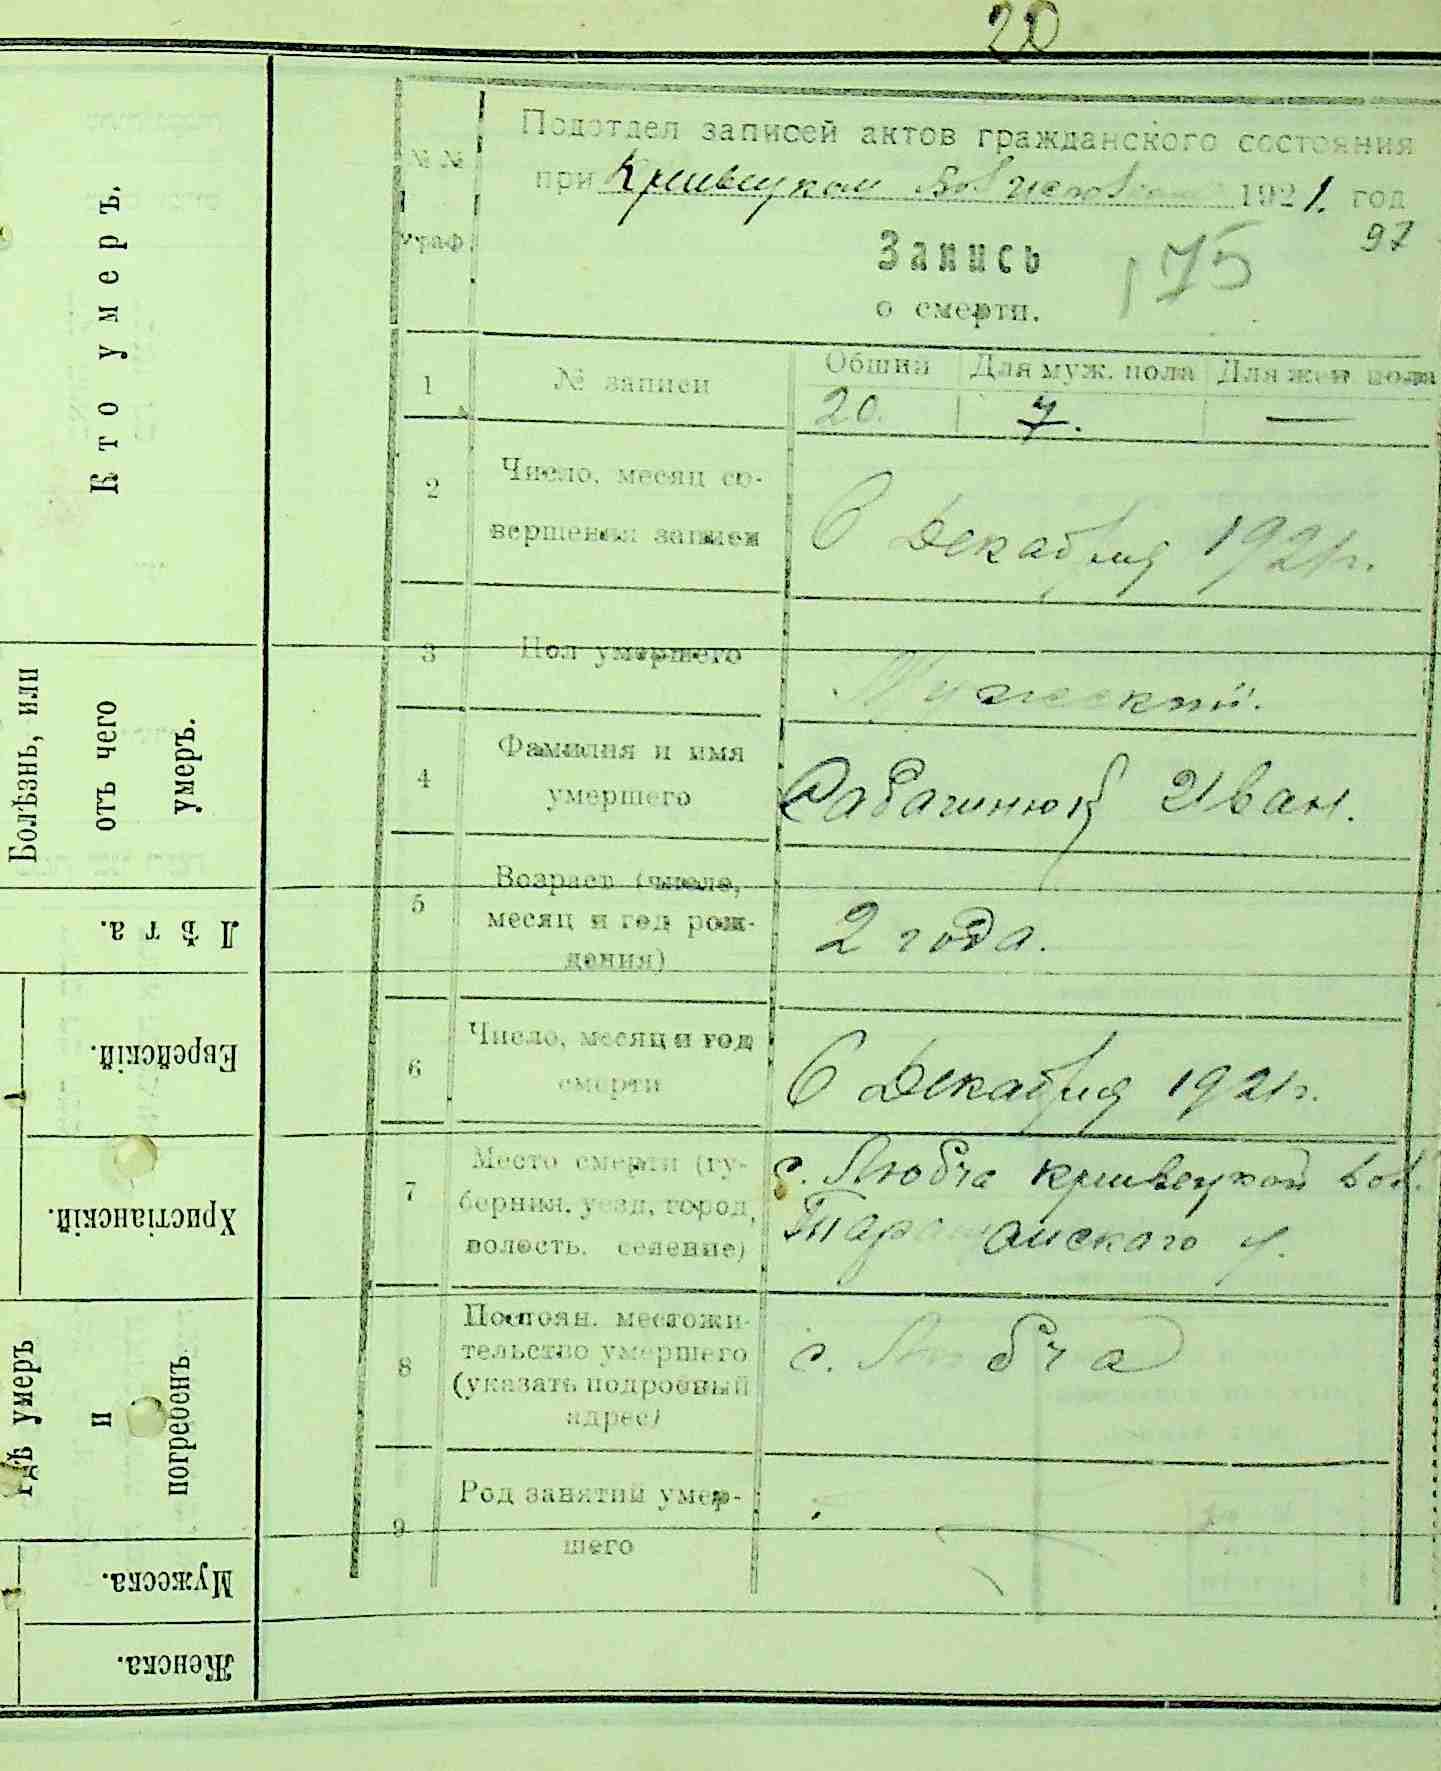 20
Кто умеръ.
Болѣзнь, или
отъ чего
умеръ.
Лѣта.
Еврейскій.
Христіанскій.
Гдѣ умеръ
и
погребенъ
Мужеска.
Женска.
№№
граф.
Подотдел записей актов гражданского состояния
при Кривецком 1921. год
97
Запись
175
о смерти.
1 № записи
Общий Для муж. пола Для жен пола
20. 7. —
2 Число, месяц со-
вершения записи
6 Декабря 1921 г.
3 Пол умершего
Мужеский.
4 Фамилия и имя
умершего
Сабашнюк Иван.
5 Возраст (число,
месяц и год рож-
дения)
2 года.
6 Число, месяц и год
смерти
6 Декабря 1921 г.
7 Место смерти (гу-
берния, уезд, город,
волость, селение)
с. Любча Кривецкой вол.
Таращанского у.
8 Постоян. местожи-
тельство умершего
(указать подробный
адрес)
с. Любча
9 Род занятий умер-
шего